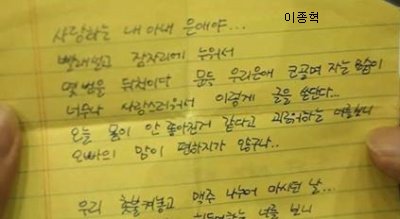 이종혁
사랑하는 내 아내 은애야...
빨래널고 잠자리에 누워서
몇 번을 뒤척이다 문득 우리은애 코골며 자는 모습이
너무나 사랑스러워서 이렇게 글을 쓴단다...
오늘 몸이 안 좋아진거 같다고 괴로워하는 여보보니
오빠의 맘이 편하지가 않구나..
우리 촛불켜놓고 맥주 나누어 마시던 날...
너를 보니